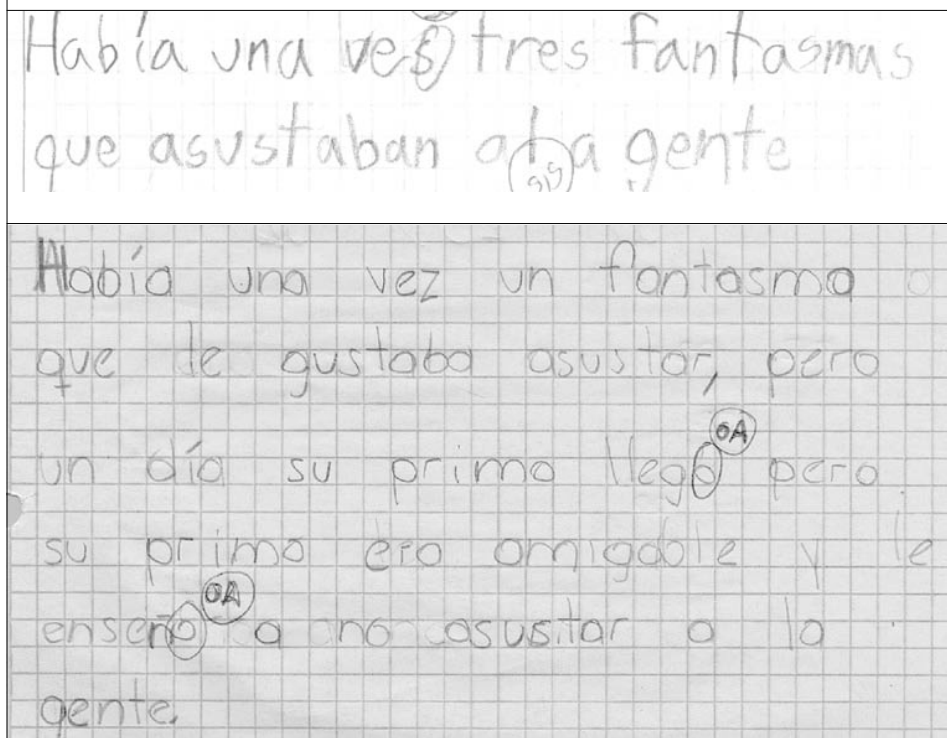 Había una ves tres fantasmas
que asustaban ala gente
Había una vez un fantasma
que le gustaba asustar, pero
OA
un día su primo llego pero
su primo era amigable y le
OA
enseño a no asustar a la
gente.